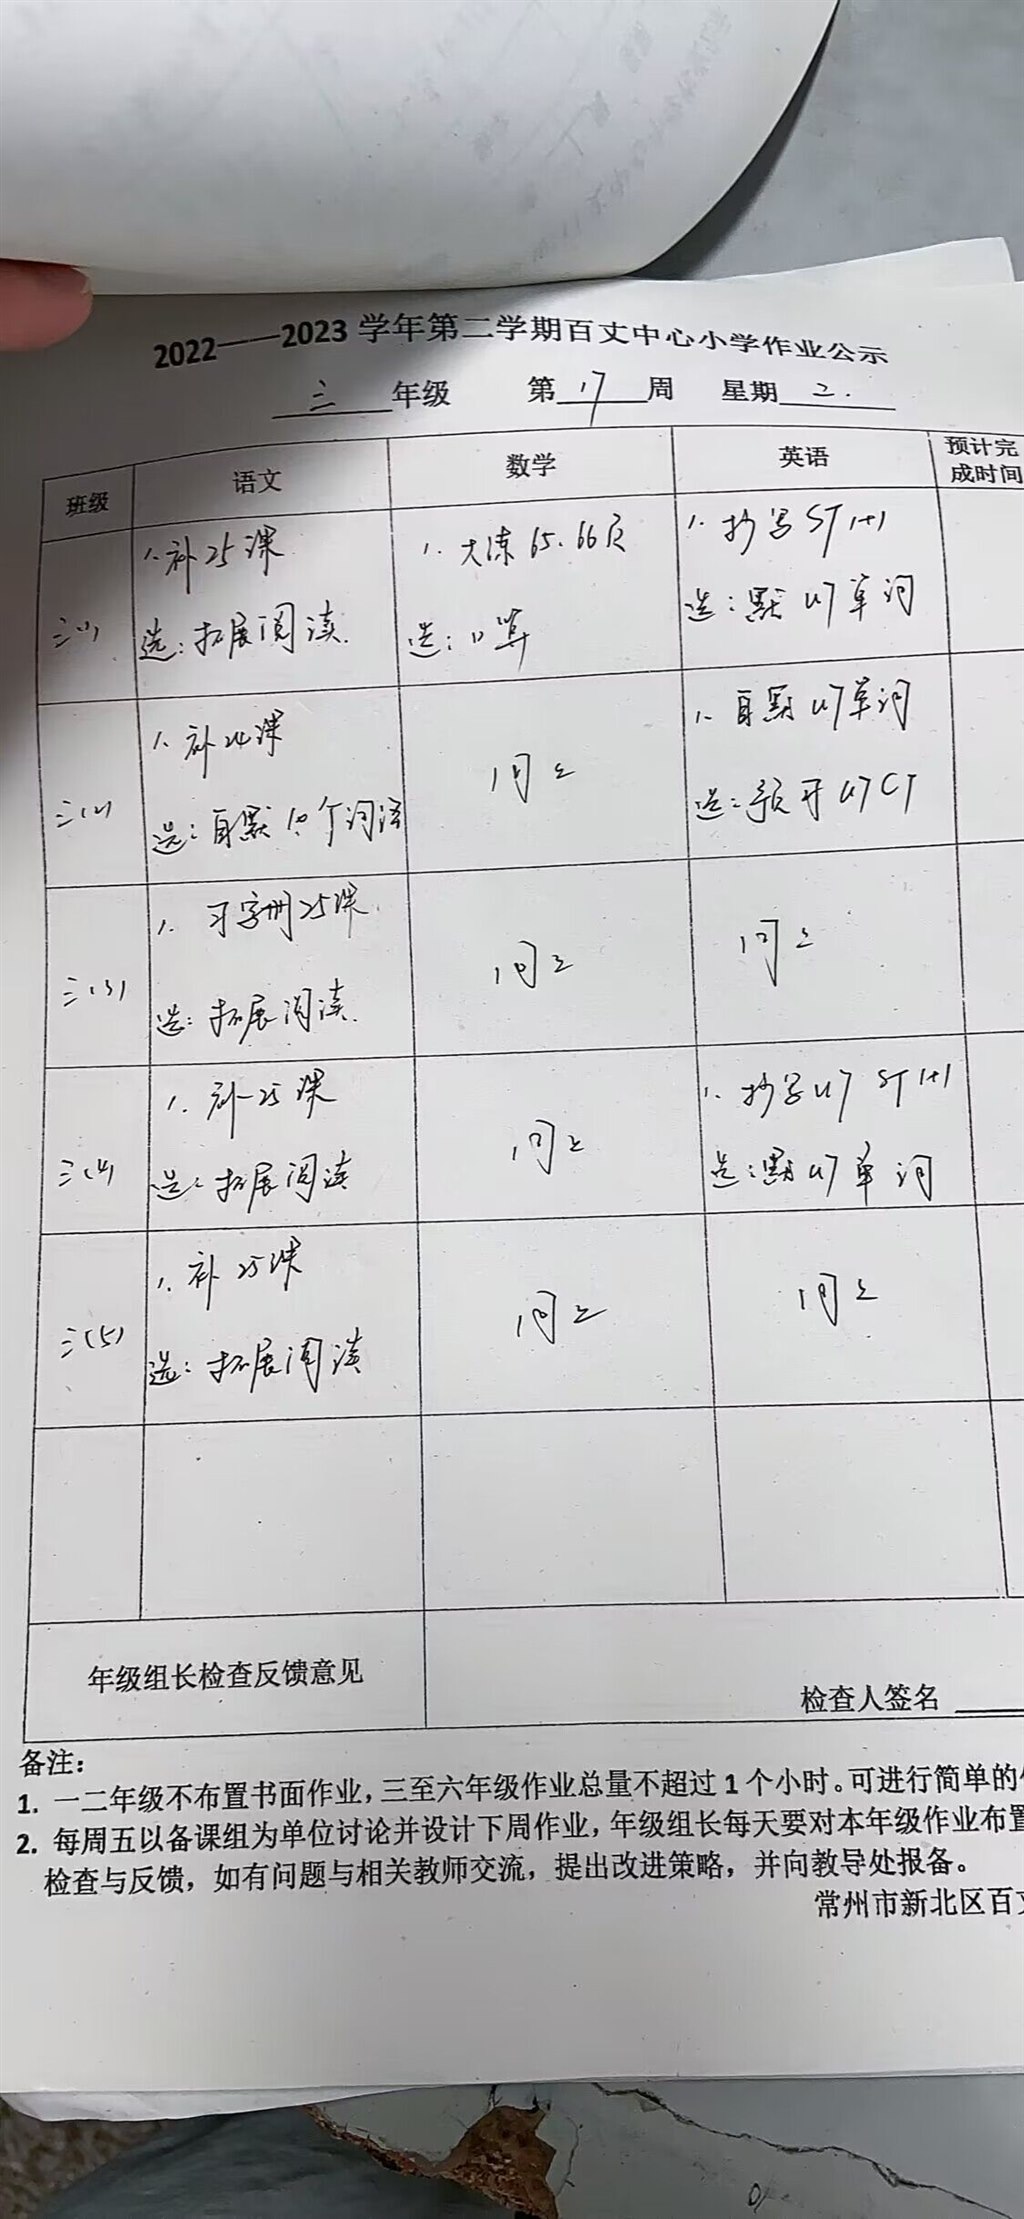 2022——2023 学年第二学期百丈中心小学作业公示
三 年级 第 17 周 星期 二.
班级 语文 数学 英语 预计完成时间
三(1)
1. 补25课
选: 拓展阅读.
1. 大练 65. 66页
选: 口算
1. 抄写 ST 1+1
选: 默 U7 单词
三(2)
1. 补24课
选: 自默 10个词语
同上
1. 自默 U7单词
选: 预习 U7 CT
三(3)
1. 习字册25课
选: 拓展阅读.
同上
同上
三(4)
1. 补25课
选: 拓展阅读
同上
1. 抄写U7 ST 1+1
选: 默 U7 单词
三(5)
1. 补 25课
选: 拓展阅读
同上
同上
年级组长检查反馈意见
检查人签名
备注:
1. 一二年级不布置书面作业,三至六年级作业总量不超过 1 个小时。可进行简单的
2. 每周五以备课组为单位讨论并设计下周作业,年级组长每天要对本年级作业布置
检查与反馈,如有问题与相关教师交流,提出改进策略,并向教导处报备。
常州市新北区百丈